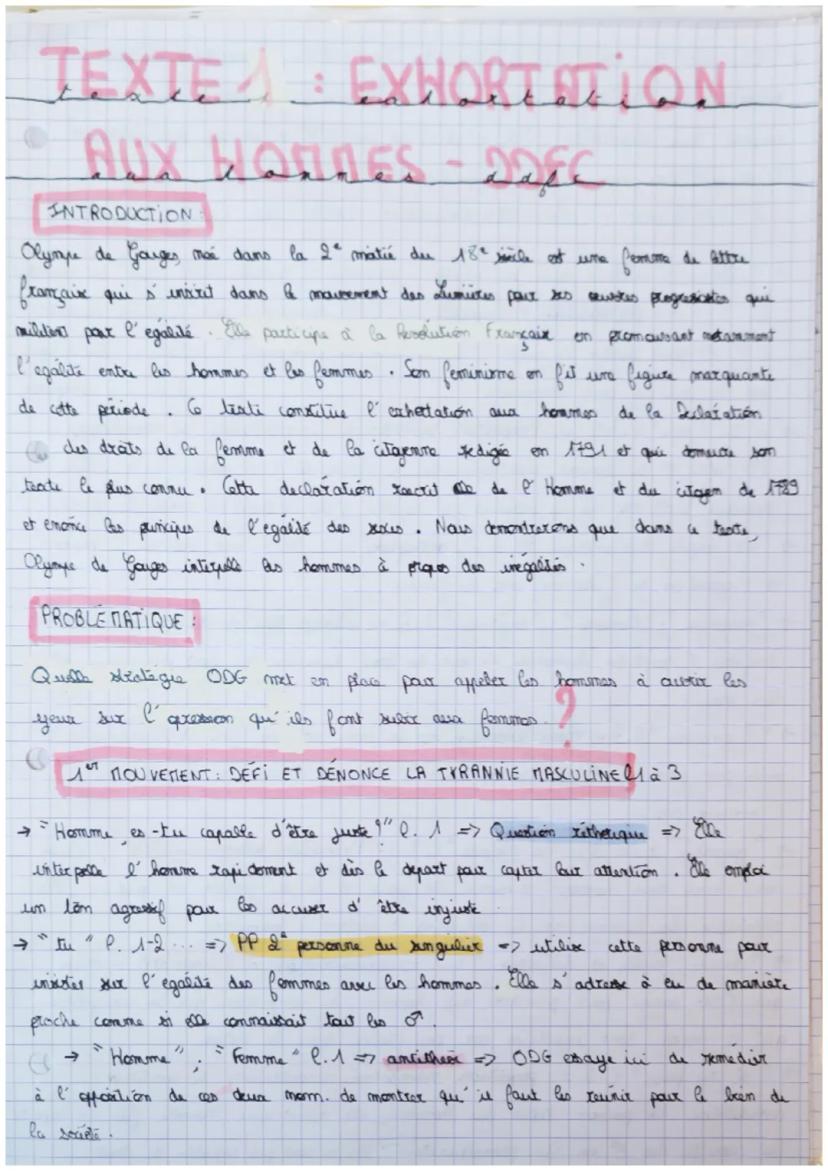 TEXTE 1 : EXHORTATION
texte 1 : exhortation
AUX HOMMES - DDFC
aux hommes ddfc
INTRODUCTION :
Olympe de Gouges, née dans la 2e moitié du 18e siècle est une femme de lettre
française qui s'inscrit dans le mouvement des Lumières pour ses œuvres progressistes qui
militent pour l'égalité. Elle participe à la Révolution Française en promouvant notamment
l'égalité entre les hommes et les femmes. Son féminisme en fit une figure marquante
de cette période. Ce texte constitue l'exhortation aux hommes de la Déclaration
des droits de la femme et de la citoyenne rédigée en 1791 et qui demeure son
texte le plus connu. Cette déclaration réecrit celle de l'Homme et du citoyen de 1789
et énonce les principes de l'égalité des sexes. Nous démontrerons que dans ce texte,
Olympe de Gouges interpelle les hommes à propos des inégalités.
PROBLÉMATIQUE :
Quelle stratégie ODG met en place pour appeler les hommes à ouvrir les
yeux sur l'opression qu'ils font subir aux femmes. ?
1er MOUVEMENT : DÉFI ET DÉNONCE LA TYRANNIE MASCULINE l1 à 3
→ "Homme, es-tu capable d'être juste ?" l. 1 => Question réthorique => Elle
interpelle l'homme rapidement et dès le départ pour capter leur attention. Elle emploi
un ton agressif pour les accuser d'être injuste
→ "tu" l. 1-2 ... => PP 2e personne du singulier => utilise cette personne pour
insister sur l'égalité des femmes avec les hommes. Elle s'adresse à eu de manière
proche comme si elle connaissait tout les ♂.
→ "Homme" ; "Femme" l.1 => antithèse => ODG essaye ici de remédier
à l'opposition de ces deux nom. de montrer qu'il faut les réunir pour le bien de
la société.